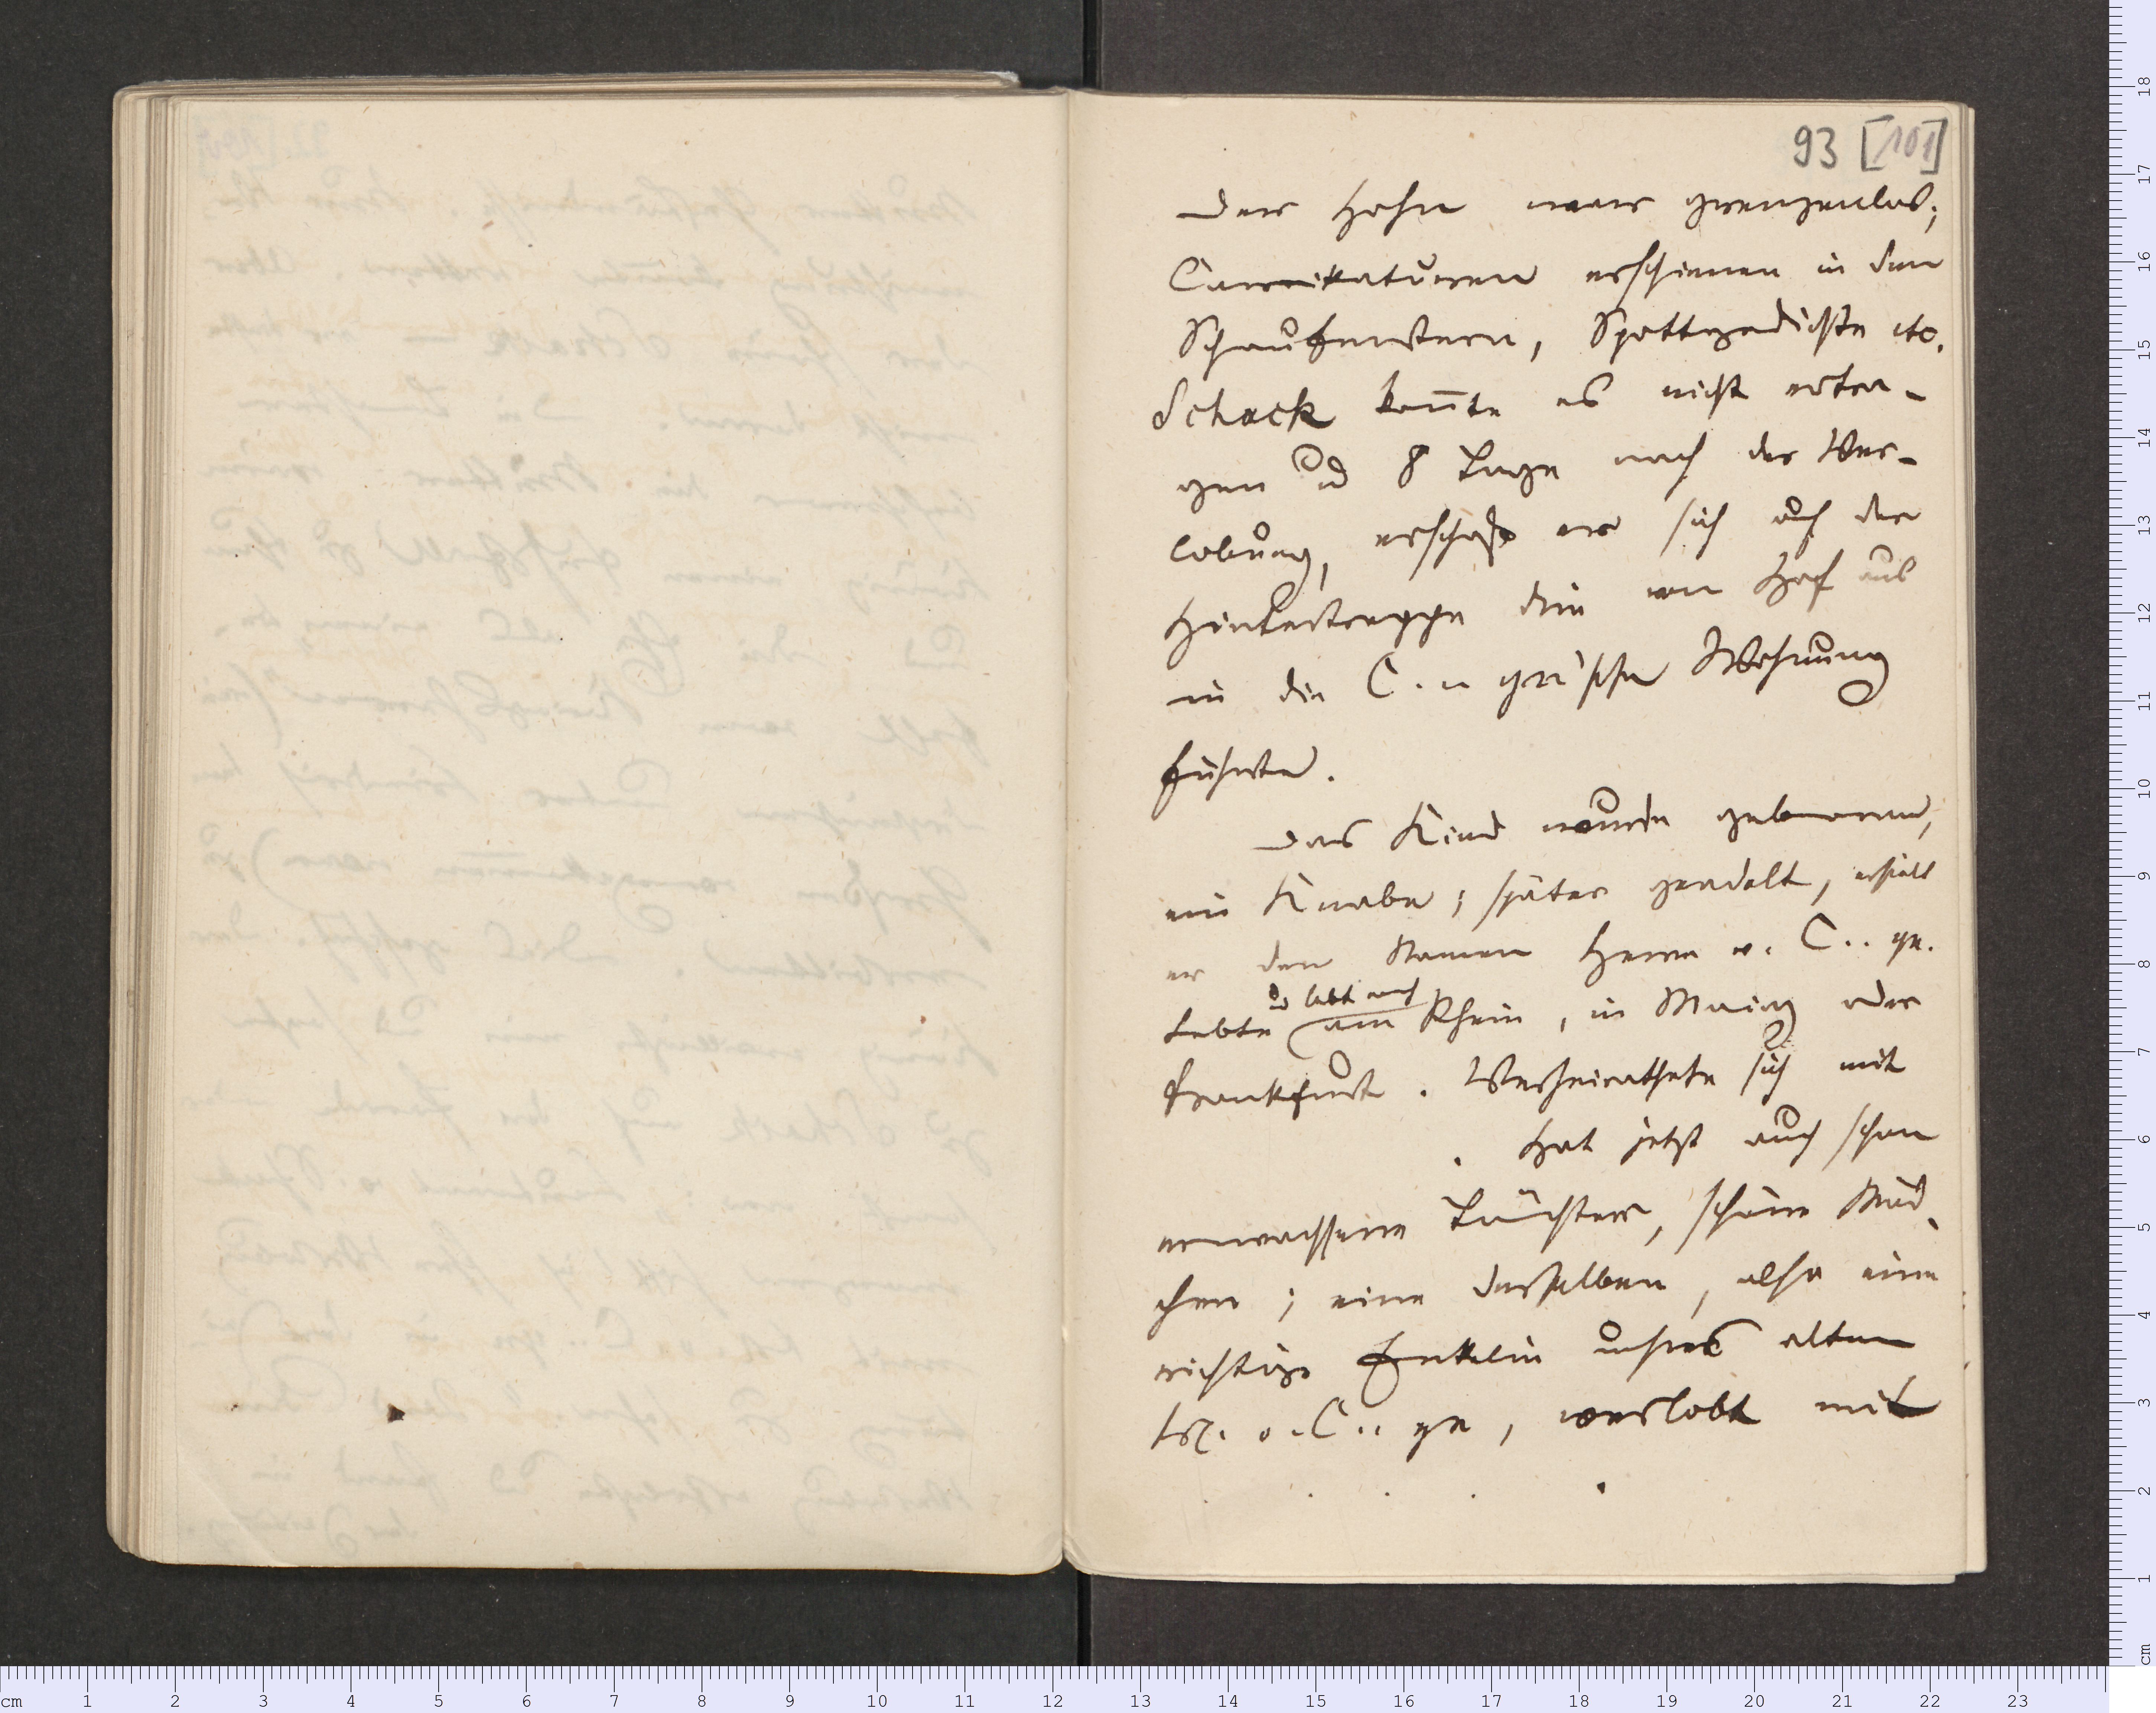 93 [101]
Der Hohn war grenzenlos;
Carrikaturen erschienen in den
Schaufenstern, Spottgedichte etc.
Schack kon̄te es nicht ertra-
gen ud 8 Tage nach der Ver-
lobung, erschoß er sich auf der
Hintertreppe die vom Hof aus
in die C..n ge'sche Wohnung
führte.
Das Kind wurde geboren,
ein Knabe; später geadelt, erhielt
er den Namen Herr v. C.. ge.
ud lebt noch
Lebte am Rhein, in Mainz oder
Frankfurt. Verheirathete sich mit
. Hat jetzt auch schon
erwachsene Töchter, schöne Mäd-
chen; eine derselben, also eine
richtige Enkelin unsres alten
v. C.. ge, verlobt mit
. . . . .